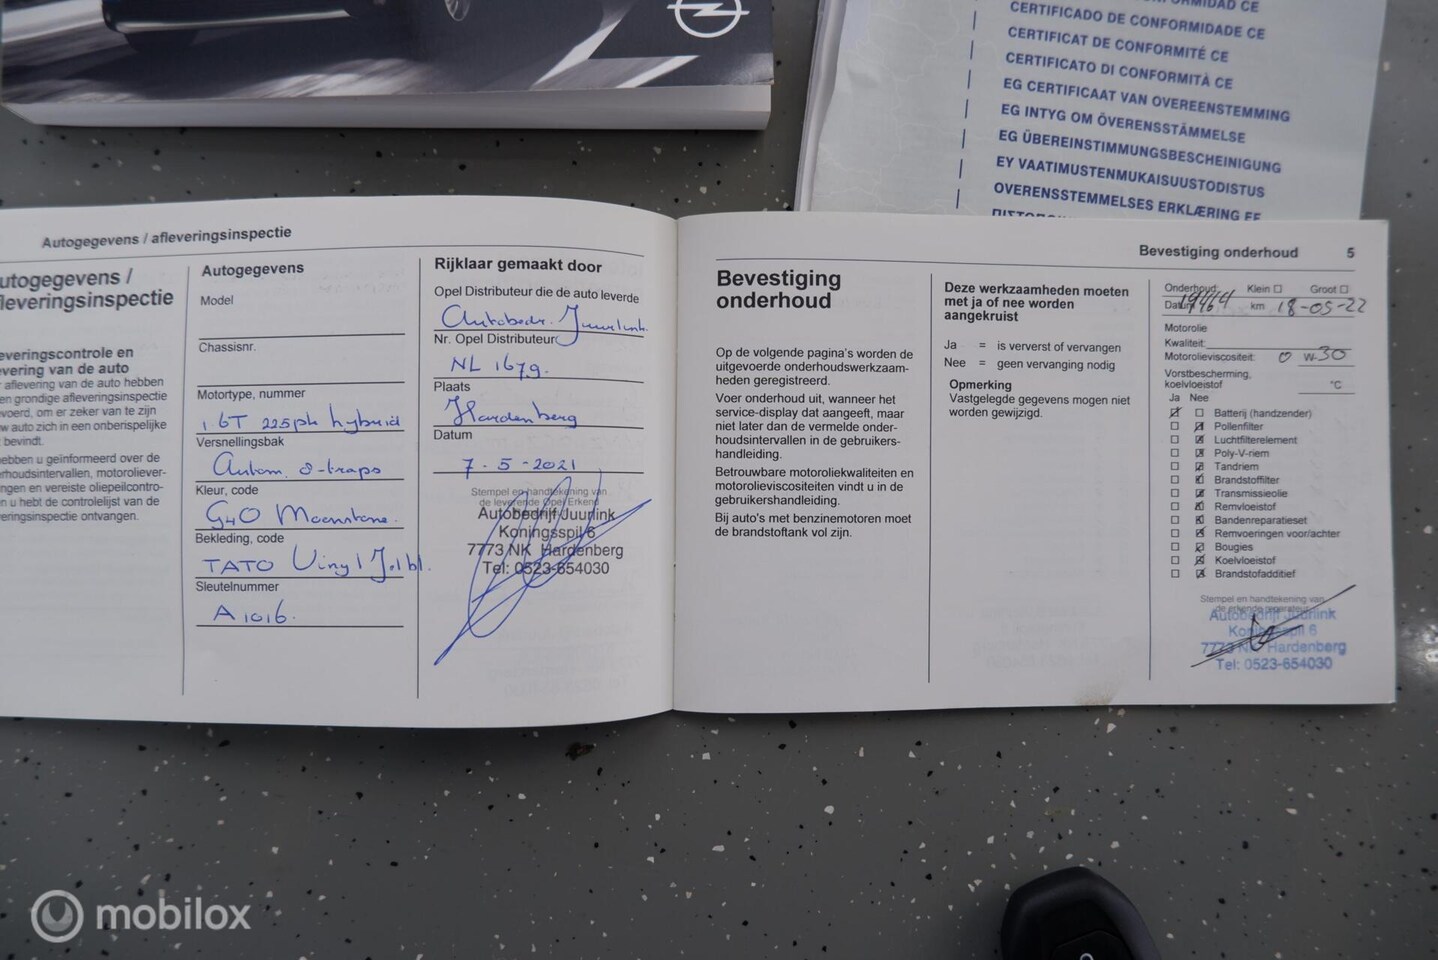 CERTIFICADO DE CONFORMIDADE CE
CERTIFICAT DE CONFORMITÉ CE
CERTIFICATO DI CONFORMITÀ CE
EG CERTIFICAAT VAN OVEREENSTEMMING
EG INTYG OM ÖVERENSSTÄMMELSE
EG ÜBEREINSTIMMUNGSBESCHEINIGUNG
EY VAATIMUSTENMUKAISUUSTODISTUS
OVERENSSTEMMELSES ERKLÆRING EF
Autogegevens / afleveringsinspectie
utogegevens /
fleveringsinspectie
everingscontrole en
evering van de auto
aflevering van de auto hebben
en grondige afleveringsinspectie
voerd, om er zeker van te zijn
w auto zich in een onberispelijke
bevindt.
ebben u geïnformeerd over de
rhoudsintervallen, motoroliever-
ngen en vereiste oliepeilcontro-
n u hebt de controlelijst van de
veringsinspectie ontvangen.
Autogegevens
Model
Chassisnr.
Motortype, nummer
1.6T 225pk hybrid
Versnellingsbak
Autom. 8-traps
Kleur, code
G4O Moonstone.
Bekleding, code
TATO Vinyl
Sleutelnummer
A1016.
Rijklaar gemaakt door
Opel Distributeur die de auto leverde
Autobedr. Juurlink.
Nr. Opel Distributeur
NL 1679.
Plaats
Hardenberg
Datum
7-5-2021
Stempel en handtekening van
de leverende Opel Erkend
Autobedrijf Juurlink
Koningsspil 6
7773 NK Hardenberg
Tel: 0523-654030
Bevestiging onderhoud 5
Bevestiging
onderhoud
Op de volgende pagina's worden de
uitgevoerde onderhoudswerkzaam-
heden geregistreerd.
Voer onderhoud uit, wanneer het
service-display dat aangeeft, maar
niet later dan de vermelde onder-
houdsintervallen in de gebruikers-
handleiding.
Betrouwbare motoroliekwaliteiten en
motorolieviscositeiten vindt u in de
gebruikershandleiding.
Bij auto's met benzinemotoren moet
de brandstoftank vol zijn.
Deze werkzaamheden moeten
met ja of nee worden
aangekruist
Ja = is ververst of vervangen
Nee = geen vervanging nodig
Opmerking
Vastgelegde gegevens mogen niet
worden gewijzigd.
Onderhoud: Klein Groot
Datum 19464 km 18-05-22
Motorolie
Kwaliteit:
Motorolieviscositeit: 0 W-30
Vorstbescherming,
koelvloeistof °C
Ja Nee
Batterij (handzender)
Pollenfilter
Luchtfilterelement
Poly-V-riem
Tandriem
Brandstoffilter
Transmissieolie
Remvloeistof
Bandenreparatieset
Remvoeringen voor/achter
Bougies
Koelvloeistof
Brandstofadditief
Stempel en handtekening van
de erkende reparateur
Autobedrijf Juurlink
Koningsspil 6
7773 NK Hardenberg
Tel: 0523-654030
mobilox